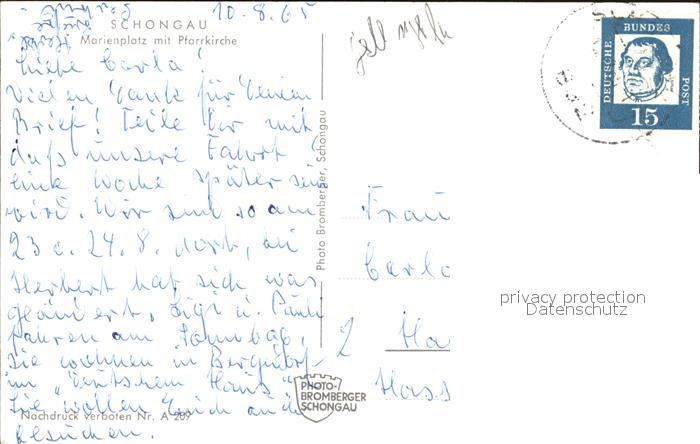 10.8.65
SCHONGAU
Marienplatz mit Pfarrkirche
Liebe Carla!
Vielen Dank für Deinen
Brief! Teile Dir mit
daß unsere Fahrt
eine Woche später sein
wird. Wir sind so am
23 o. 24.8. dort, bei
Herbert hat sich was
geändert, Sigi u. Paula
fahren am Sonntag,
sie wohnen in
im "Deutschem Haus"
Sie wollen Euch auch
besuchen.
Nachdruck verboten Nr. A 209
Photo Bromberger, Schongau
PHOTO-
BROMBERGER
SCHONGAU
DEUTSCHE
BUNDES
POST
15
Frau
Carla
Ha
Hass
privacy protection
Datenschutz